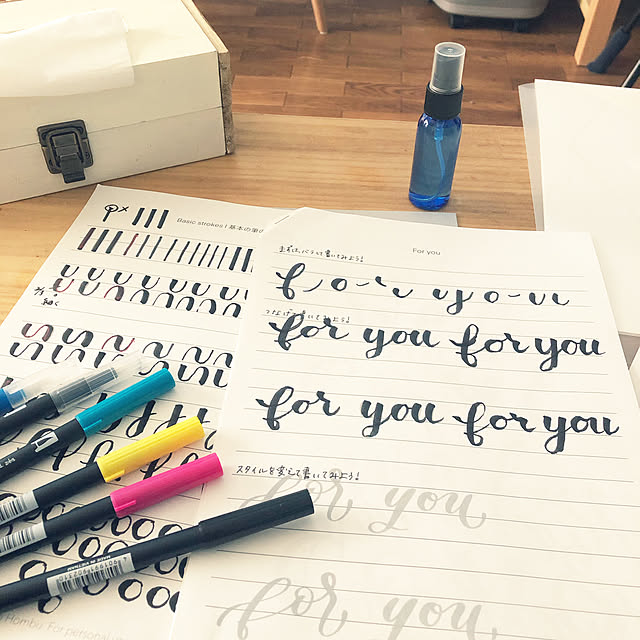 Basic strokes | 基本の筆の
細く
For personal
For you
まずは、バラして書いてみよう!
つなげて書いてみよう!
for you for you
for you for you
スタイルを変えて書いてみよう!
for you
for you
MADE IN VIETNAM